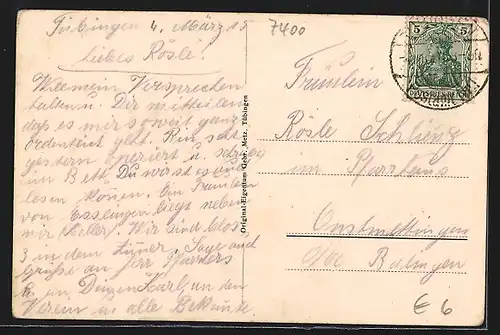 Tübingen 4. März 15
7400
liebes Rösle!
Will mein Versprechen
halten u. Dir mitteilen
daß es mir soweit ganz
ordentlich geht. Bin seit
gestern operiert u.
im Bett. Du wirst es
lesen können. Ein Fräulein
von Esslingen liegt neben
mir Keller. Wir sind blos
3 in dem Zimmer. Sage und
Grüße an Herr Pfarrers
an den
Verein u. alle Bekannte.
Original-Eigentum Gebr. Metz, Tübingen
5 5
DEUTSCHES REICH
Fräulein
Rösle Schlienz
im Pfarrhaus
Onstmettingen
O/A Balingen
€ 6